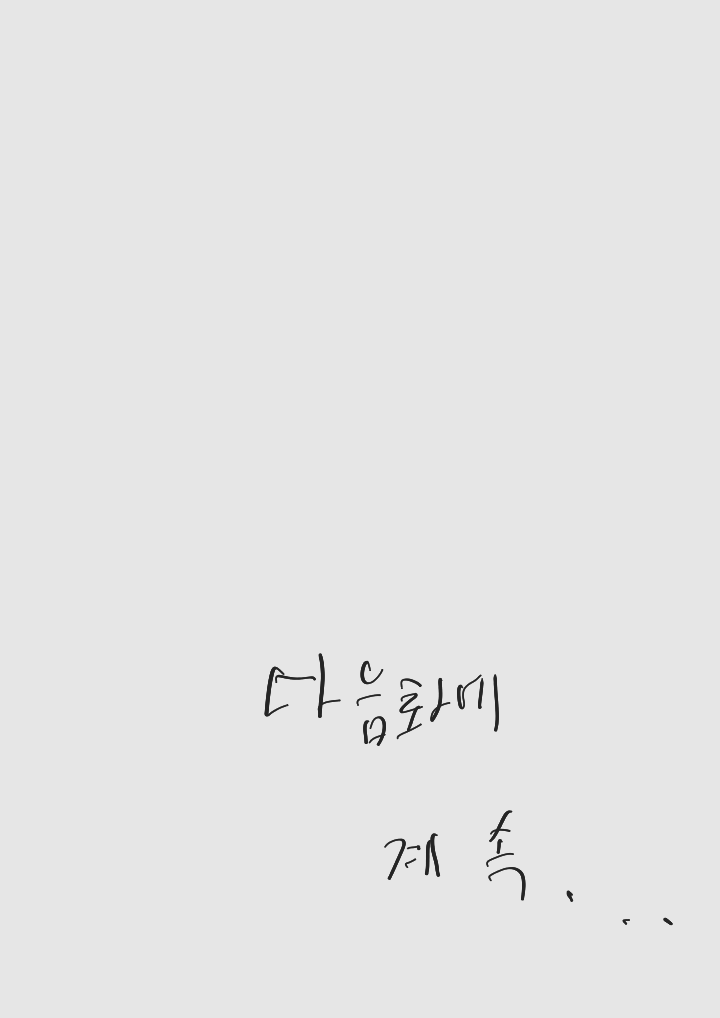 다음화에
계속...